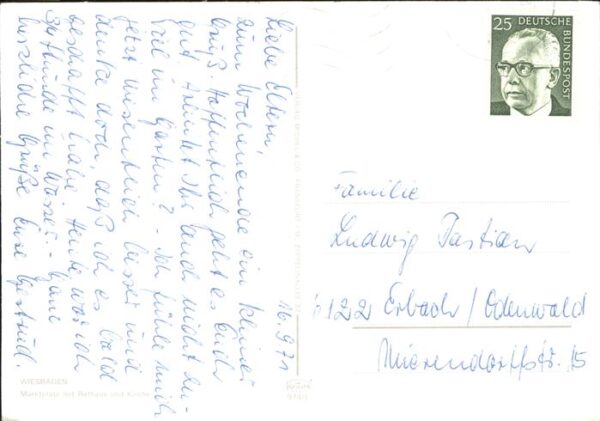 16.9.71
Liebe Eltern,
zum Wochenende ein kleiner
Gruß. Hoffentlich geht es Euch
gut. Könnt Ihr auch nicht zu-
viel im Garten? - Ich fühle mich
jetzt wesentlich besser und
denke doch, daß ich es bald
geschafft habe. Heute war ich
3/4 Stunde im Wasser. - Ganz
herzliche Grüße Eure Gertrud.
25 DEUTSCHE
BUNDESPOST
Familie
Ludwig Pastian
6122 Erbach/Odenwald
Mierendorffstr. 15
WIESBADEN
Marktplatz mit Rathaus und Kirche